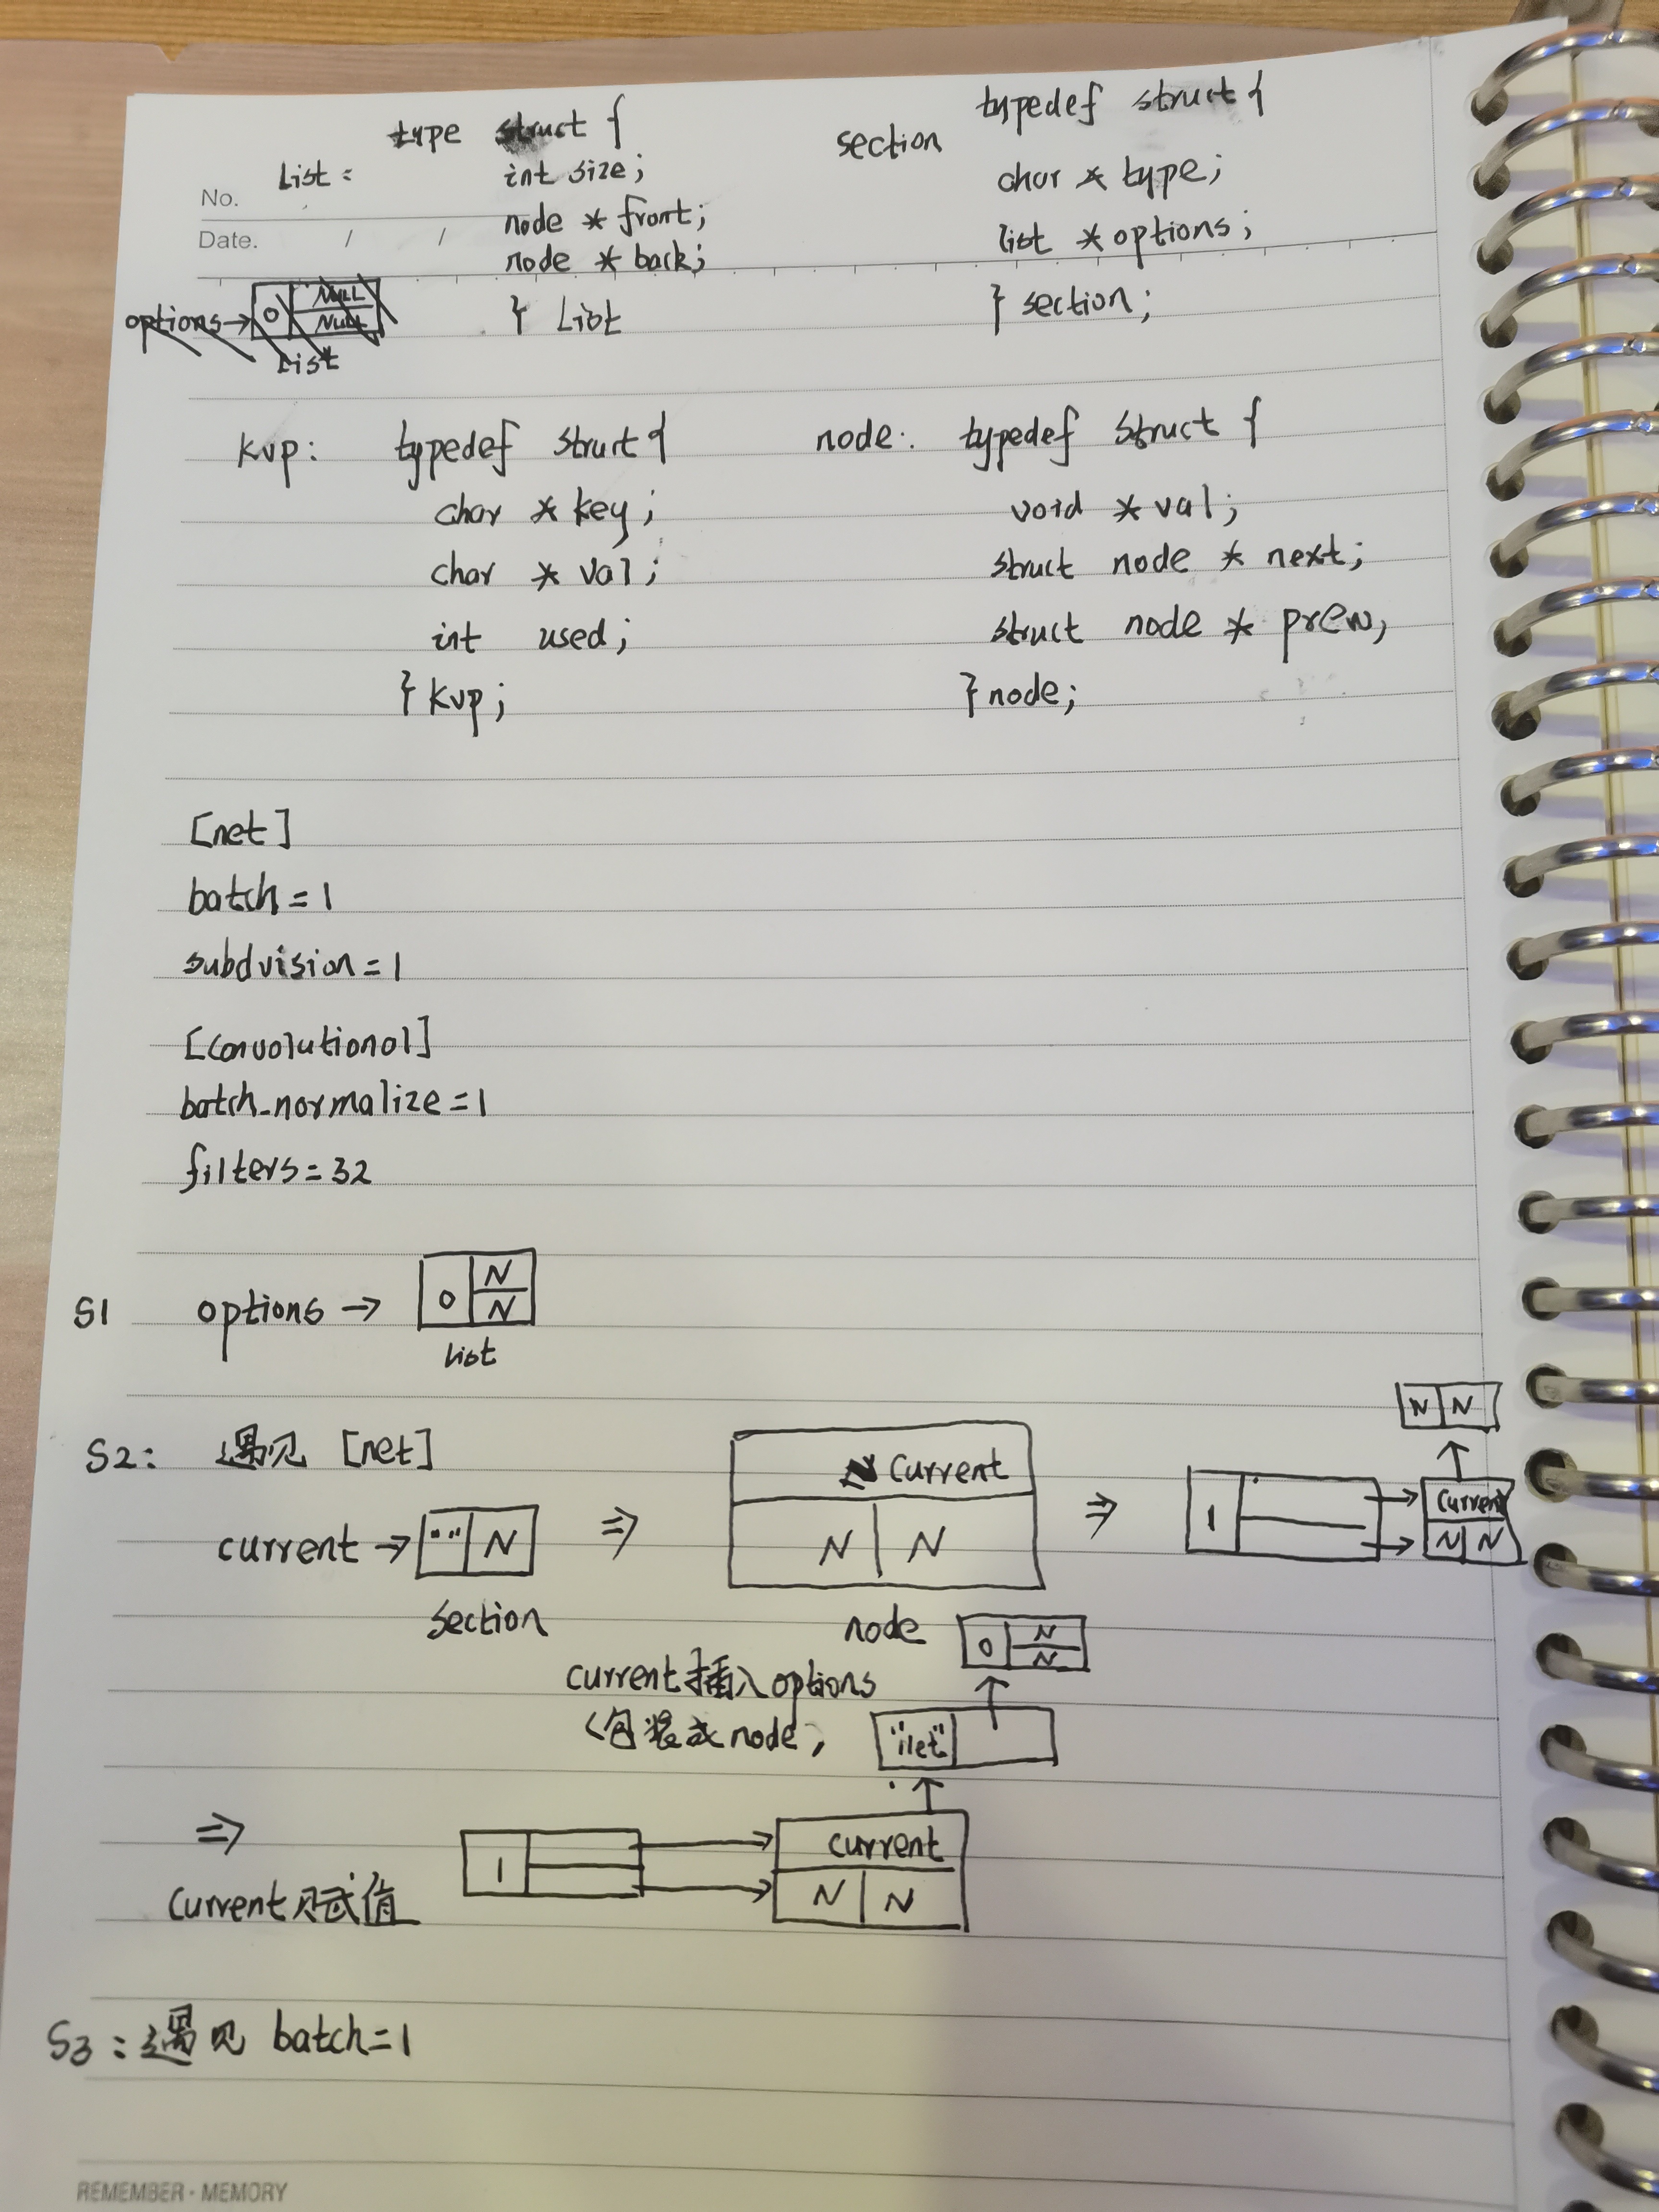 List: type struct {
int size;
node * front;
node * back;
} List
section typedef struct {
char * type;
list * options;
} section;
No.
Date. / /
options → 0 NULL
NULL
List
kvp: typedef struct {
char * key;
char * val;
int used;
} kvp;
node: typedef struct {
void * val;
struct node * next;
struct node * prev;
} node;
[net]
batch = 1
subdvision = 1
[convolutional]
batch_normalize = 1
filters = 32
S1 options → 0 N
N
List
S2: 遇见 [net]
current → "" N
section
⇒
current
N N
node
⇒
1
N N
current
N N
current插入options
(包装成node)
0 N
N
"net"
⇒
current赋值
1
current
N N
S3: 遇见 batch=1
REMEMBER · MEMORY